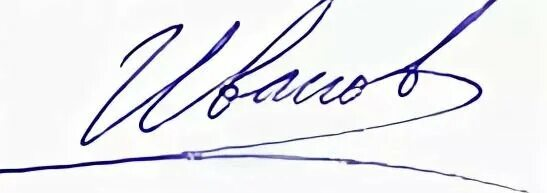 Иванов